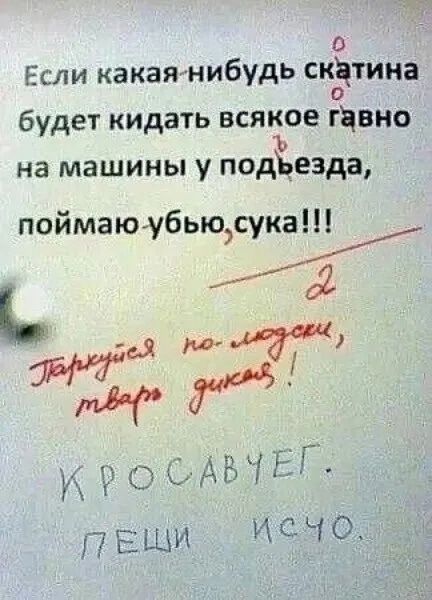 о
Если какая-нибудь скатина
о
будет кидать всякое гавно
ъ
на машины у подьезда,
поймаю-убью,сука!!!
2
Паркуйся по-людски,
тварь дикая!
КРОСАВЧЕГ.
ПЕШИ ИСЧО.